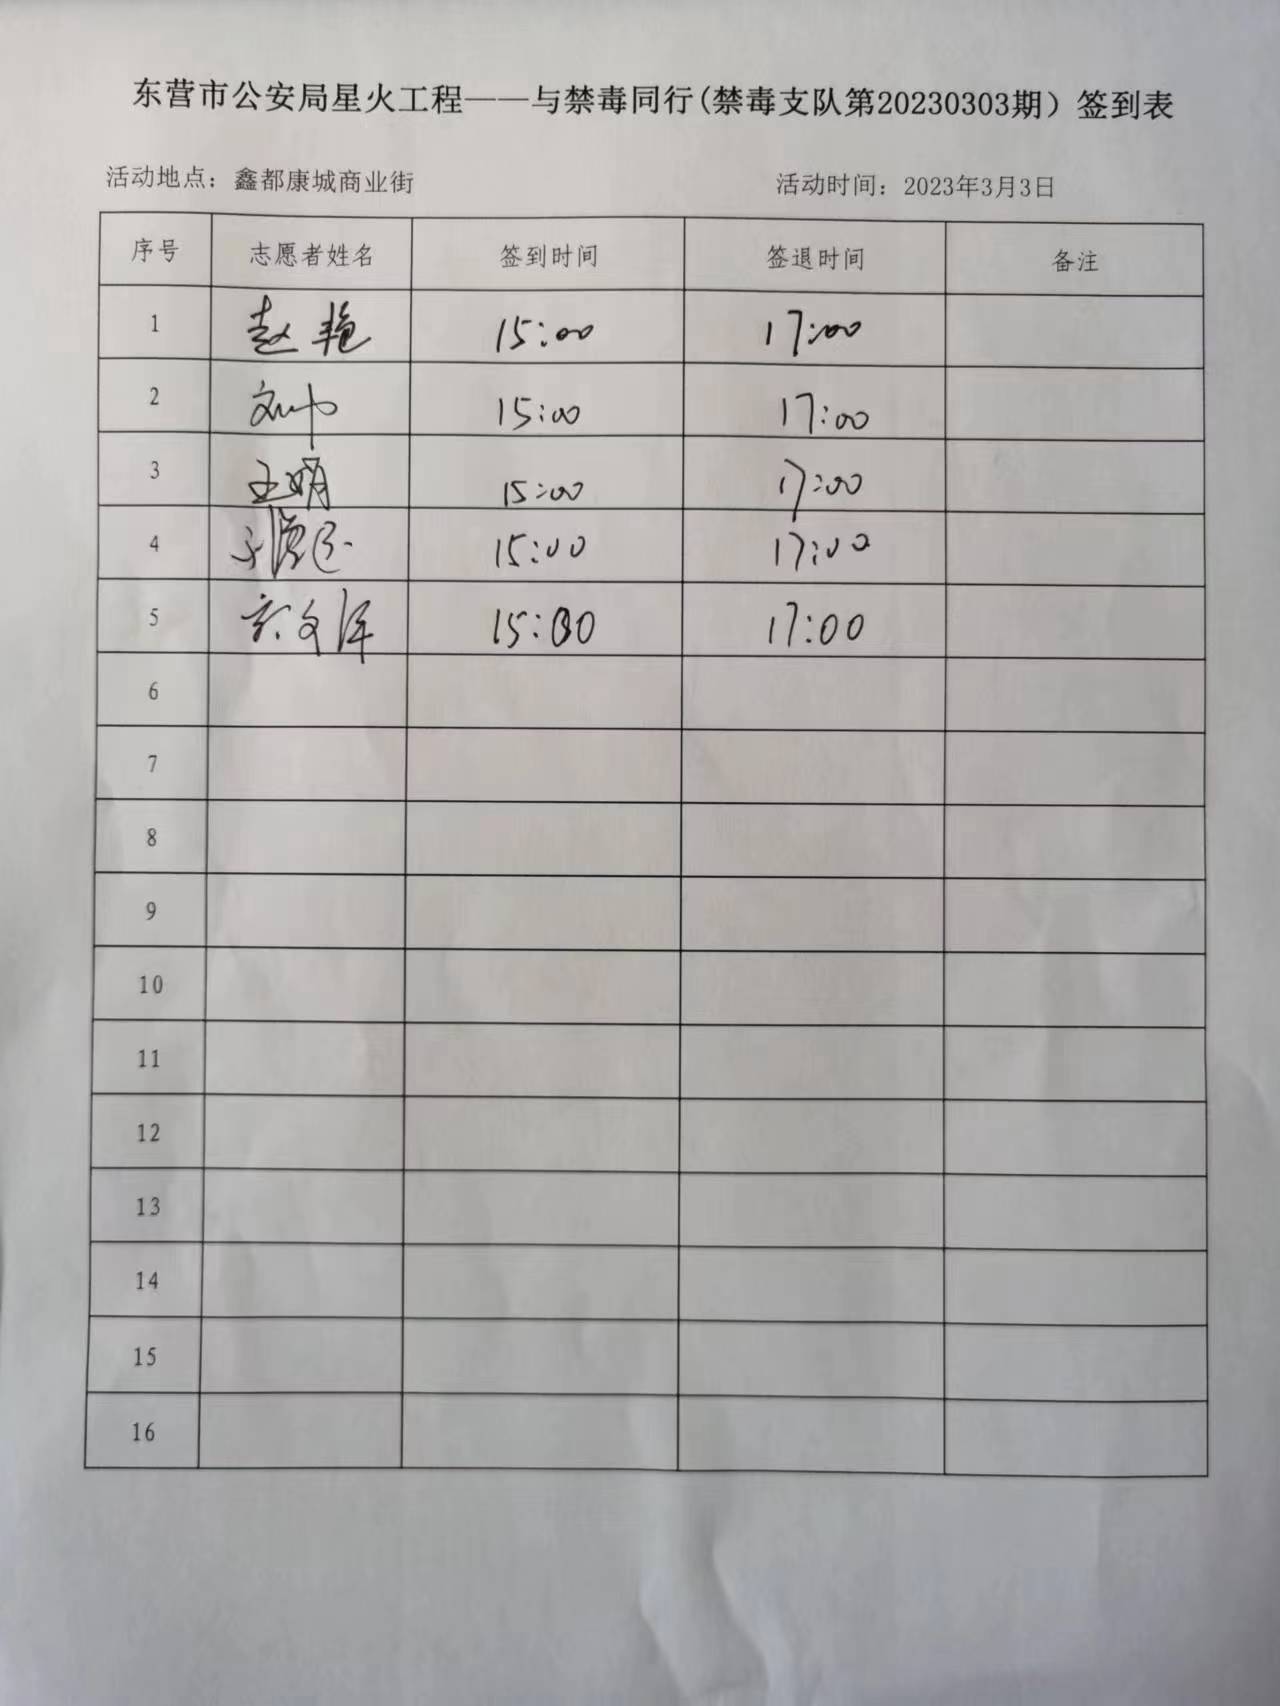 东营市公安局星火工程——与禁毒同行(禁毒支队第20230303期）签到表
活动地点：鑫都康城商业街 活动时间：2023年3月3日
序号 志愿者姓名 签到时间 签退时间 备注
1 赵艳 15:00 17:00
2 15:00 17:00
3 王娟 15:00 17:00
4 15:00 17:00
5 15:00 17:00
6
7
8
9
10
11
12
13
14
15
16